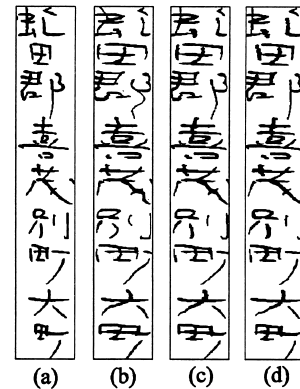 虻田郡喜茂別町大町
(a)
虻田郡喜茂別町大町
(b)
虻田郡喜茂別町大町
(c)
虻田郡喜茂別町大町
(d)